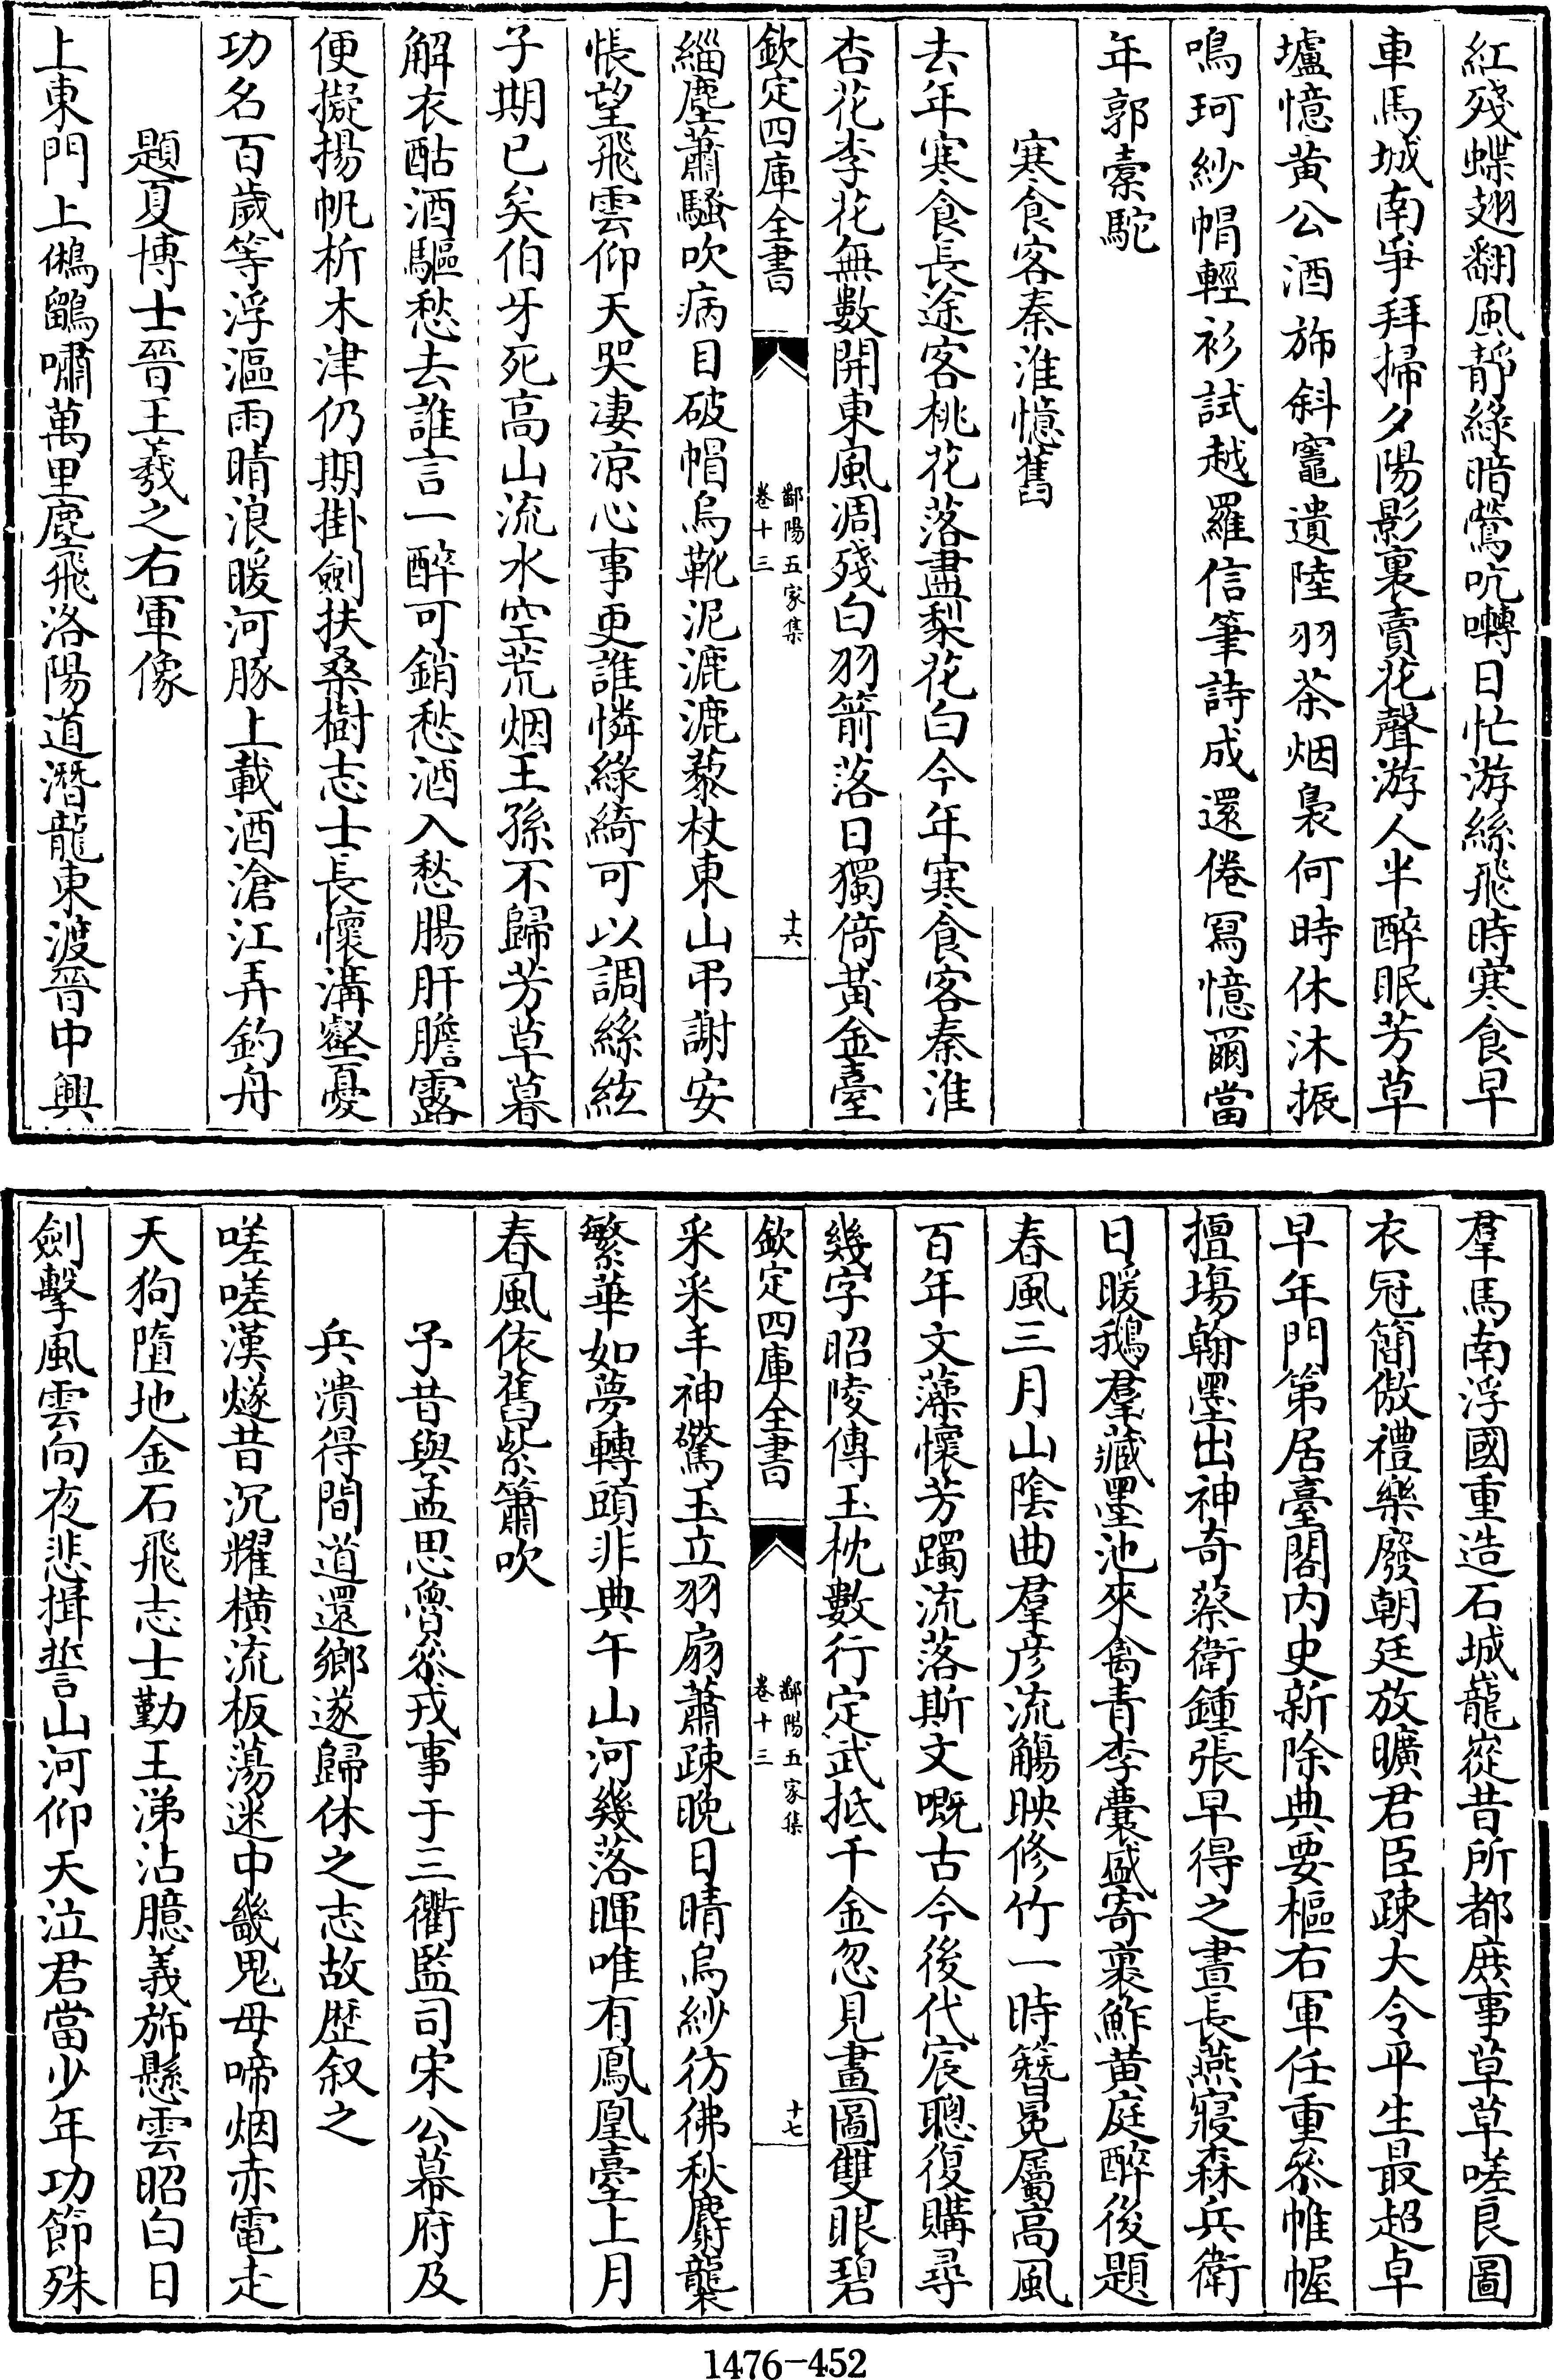 紅殘蝶翅翻風靜綠暗鶯吭囀日忙游絲飛時寒食早
車馬城南爭拜掃夕陽影裏賣花聲游人半醉眠芳草
壚憶黃公酒斾斜竈遺陸羽茶烟裊何時休沐振
鳴珂紗帽輕衫試越羅信筆詩成還倦冩憶爾當
年郭橐駝
寒食客秦淮憶舊
去年寒食長途客桃花落盡梨花白今年寒食客秦淮
杏花李花無數開東風凋殘白羽箭落日獨倚黃金臺
欽定四庫全書
鄱陽五家集
卷十三
十六
緇塵蕭騷吹病目破帽烏靴泥漉漉藜杖東山弔謝安
悵望飛雲仰天哭凄凉心事更誰憐綠綺可以調絲絃
子期已矣伯牙死高山流水空荒烟王孫不歸芳草暮
解衣酤酒驅愁去誰言一醉可銷愁酒入愁腸肝膽露
便擬揚帆析木津仍期掛劍扶桑樹志士長懷溝壑憂
功名百歲等浮漚雨晴浪暖河豚上載酒滄江弄釣舟
題夏博士晉王羲之右軍像
上東門上鵂鶹嘯萬里塵飛洛陽道潛龍東渡晉中興
羣馬南浮國重造石城巃嵸昔所都庶事草草嗟良圖
衣冠簡傲禮樂廢朝廷放曠君臣疎大令平生最超卓
早年門第居臺閣內史新除典要樞右軍任重參帷幄
擅塲翰墨出神奇蔡衛鍾張早得之晝長燕寢森兵衛
日暖鵝羣藏墨池來禽青李囊盛寄裹鮓黃庭醉後題
春風三月山陰曲羣彦流觴映修竹一時簪冕屬高風
百年文藻懷芳躅流落斯文嘅古今後代宸聰復購尋
幾字昭陵傳玉枕數行定武抵千金忽見畫圖雙眼碧
欽定四庫全書
鄱陽五家集
卷十三
十七
采采丰神驚玉立羽扇蕭疎晚日晴烏紗彷彿秋麝襲
繁華如夢轉頭非典午山河幾落暉唯有鳳凰臺上月
春風依舊紫簫吹
予昔與孟思魯叅戎事于三衢監司宋公幕府及
兵潰得間道還鄉遂歸休之志故歷叙之
嗟嗟漢燧昔沉耀橫流板蕩迷中畿鬼母啼烟赤電走
天狗墮地金石飛志士勤王涕沾臆義斾懸雲昭白日
劍擊風雲向夜悲揖誓山河仰天泣君當少年功節殊
1476-452